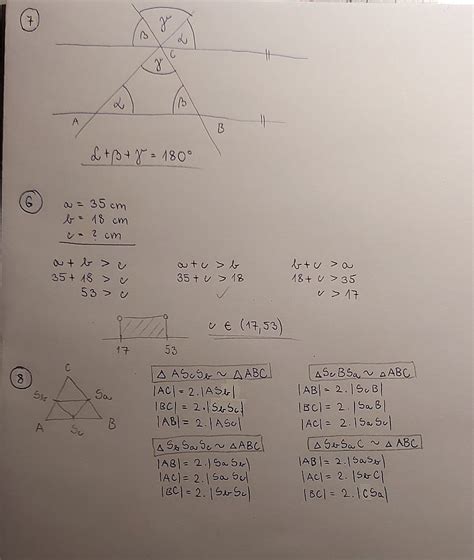 7
γ
β α
C
γ
α β
A B
α + β + γ = 180°
6
a = 35 cm
b = 18 cm
c = ? cm
a + b > c a + c > b b + c > a
35 + 18 > c 35 + c > 18 18 + c > 35
53 > c ✓ c > 17
17 53 c ∈ (17,53)
8
C
Sb Sa
A Sc B
△ AScSb ~ △ABC
|AC| = 2.|ASb|
|BC| = 2.|SbSc|
|AB| = 2.|ASc|
△ScBSa ~ △ABC
|AB| = 2.|ScB|
|BC| = 2.|SaB|
|AC| = 2.|SaSc|
△ SbSaSc ~ △ABC
|AB| = 2.|SaSb|
|AC| = 2.|SaSc|
|BC| = 2.|SbSc|
△SbSaC ~ △ABC
|AB| = 2.|SaSb|
|AC| = 2.|SbC|
|BC| = 2.|CSa|